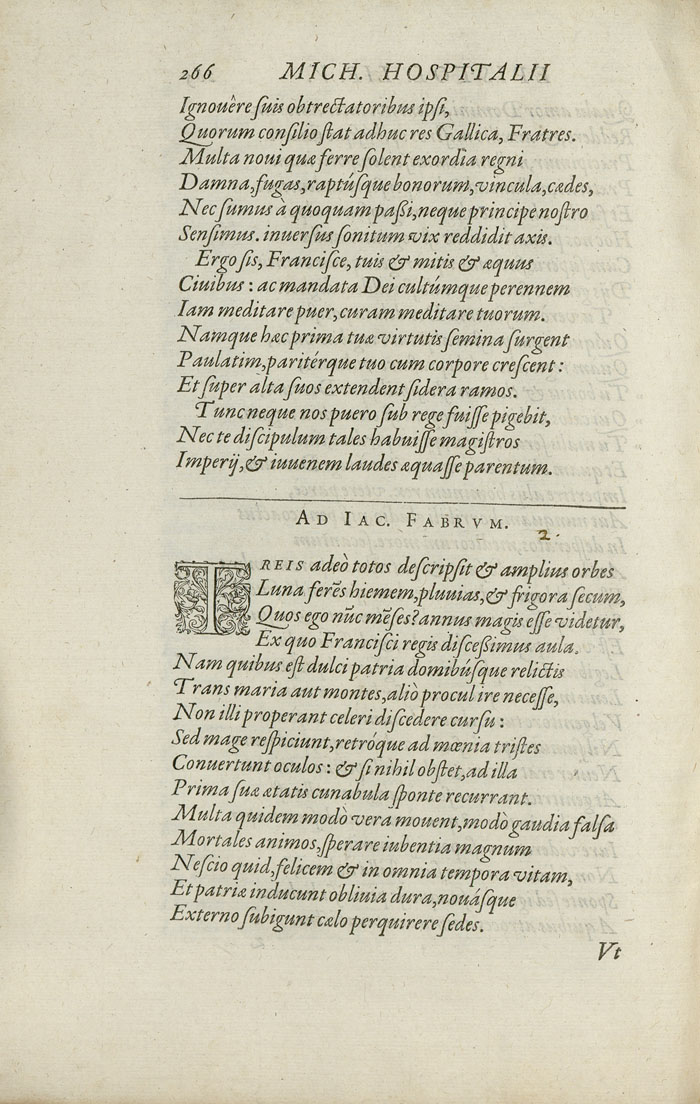 266 MICH. HOSPITALII
Ignouêre ſuis obtrectatoribus ipſi,
Quorum conſilio ſtat adhuc res Gallica, Fratres.
Multa noui quæ ferre ſolent exordia regni
Damna, fugas, raptúſque bonorum, vincula, cædes,
Nec ſumus à quoquam paßi, neque principe noſtro
Senſimus. inuerſus ſonitum vix reddidit axis.
Ergo ſis, Franciſce, tuis & mitis & æquus
Ciuibus: ac mandata Dei cultúmque perennem
Iam meditare puer, curam meditare tuorum.
Namque hæc prima tuæ virtutis ſemina ſurgent
Paulatim, paritérque tuo cum corpore creſcent:
Et ſuper alta ſuos extendent ſidera ramos.
Tunc neque nos puero ſub rege fuiſſe pigebit,
Nec te diſcipulum tales habuiſſe magiſtros
Imperij, & iuuenem laudes æquaſſe parentum.
AD IAC. FABRVM.
2.
TREIS adeò totos deſcripſit & amplius orbes
Luna ferẽs hiemem, pluuias, & frigora ſecum,
Quos ego nũc mẽſes? annus magis eſſe videtur,
Ex quo Franciſci regis diſceßimus aula.
Nam quibus eſt dulci patria domibúſque relictis
Trans maria aut montes, aliò procul ire neceſſe,
Non illi properant celeri diſcedere curſu:
Sed mage reſpiciunt, retróque ad mœnia triſtes
Conuertunt oculos: & ſi nihil obſtet, ad illa
Prima ſuæ ætatis cunabula ſponte recurrant.
Multa quidem modò vera mouent, modò gaudia falſa
Mortales animos, ſperare iubentia magnum
Neſcio quid, felicem & in omnia tempora vitam,
Et patriæ inducunt obliuia dura, nouáſque
Externo ſubigunt cælo perquirere ſedes.
Vt